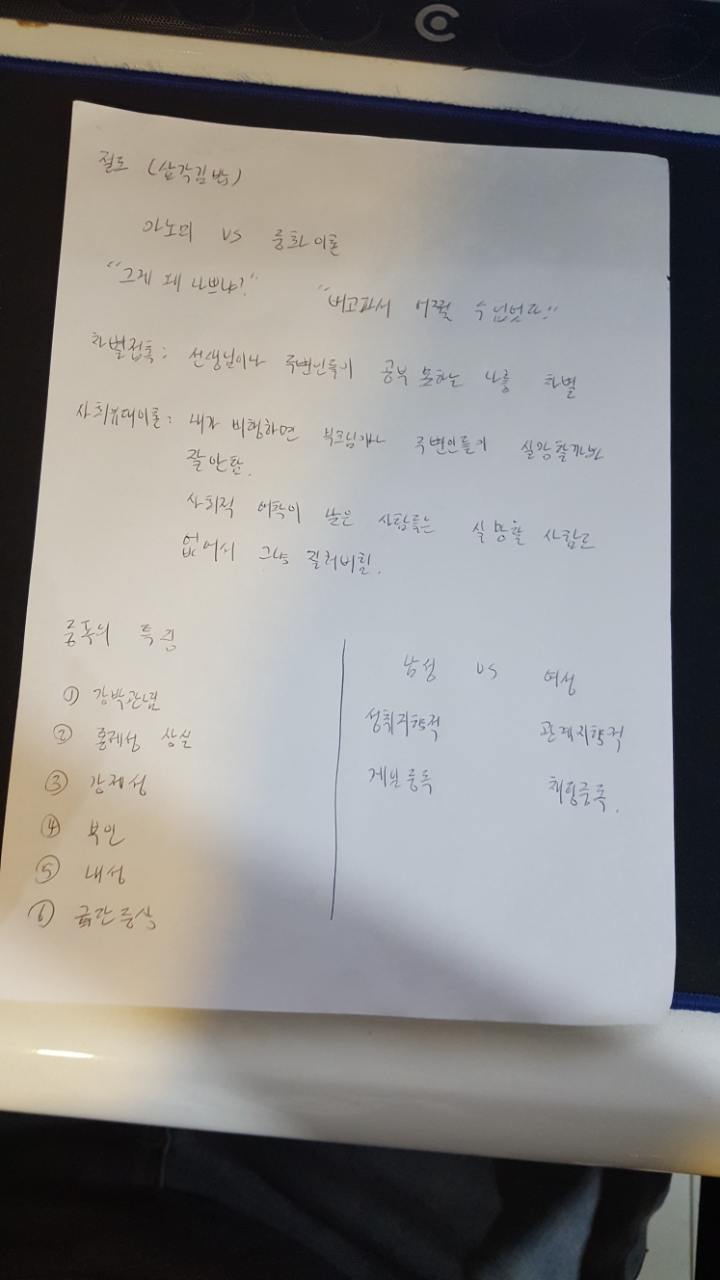 절도 (삼각김밥)
아노미 vs 중화이론
"그게 왜 나쁘냐?" "배고파서 어쩔 수 없었다!!"
차별접촉: 선생님이나 주변인들이 공부 못하는 나를 차별
사회유대이론: 내가 비행하면 부모님이나 주변인들이 실망할까봐
잘 안함.
사회적 애착이 낮은 사람들은 실망할 사람도
없어서 그냥 질러버림.
중독의 특징
① 강박관념
② 통제성 상실
③ 강제성
④ 부인
⑤ 내성
⑥ 금단증상
남성 vs 여성
성취지향적 관계지향적
게임중독 채팅중독.